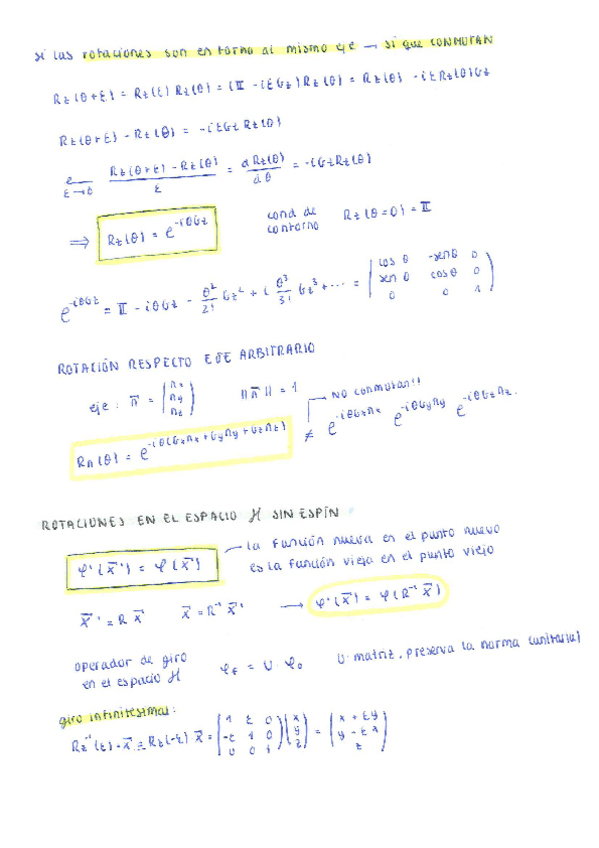 si las rotaciones son en torno al mismo eje → sí que CONMUTAN
Rz(θ+ε) = Rz(ε) Rz(θ) = (𝕀 - iεGz) Rz(θ) = Rz(θ) - iεRz(θ)Gz
Rz(θ+ε) - Rz(θ) = -iεGz Rz(θ)
ℓ ε→0 (Rz(θ+ε) - Rz(θ))/ε = dRz(θ)/dθ = -iGzRz(θ)
⟹ Rz(θ) = e^(-iθGz) cond de contorno Rz(θ=0) = 𝕀
e^(-iθGz) = 𝕀 - iθGz - θ²/2! Gz² + i θ³/3! Gz³ + ... = (cos θ -senθ 0
sen θ cosθ 0
0 0 1)
ROTACIÓN RESPECTO EJE ARBITRARIO
eje: n⃗ = (nx ny nz) ||n⃗|| = 1 NO CONMUTAN!!
Rn(θ) = e^(-iθ(Gxnx+Gyny+Gznz)) ≠ e^(-iθGxnx) e^(-iθGyny) e^(-iθGznz).
ROTACIONES EN EL ESPACIO ℋ SIN ESPÍN
φ'(x⃗') = φ(x⃗) la función nueva en el punto nuevo
es la función vieja en el punto viejo
x⃗' = R x⃗ x⃗ = R⁻¹ x⃗' → φ'(x⃗) = φ(R⁻¹ x⃗)
operador de giro
en el espacio ℋ φf = U · φ0 U: matriz, preserva la norma (unitaria)
giro infinitesimal:
Rz⁻¹(ε)·x⃗ = Rz(-ε) x⃗ = (1 ε 0
-ε 1 0
0 0 1)(x y z) = (x + εy
y - εx
z)